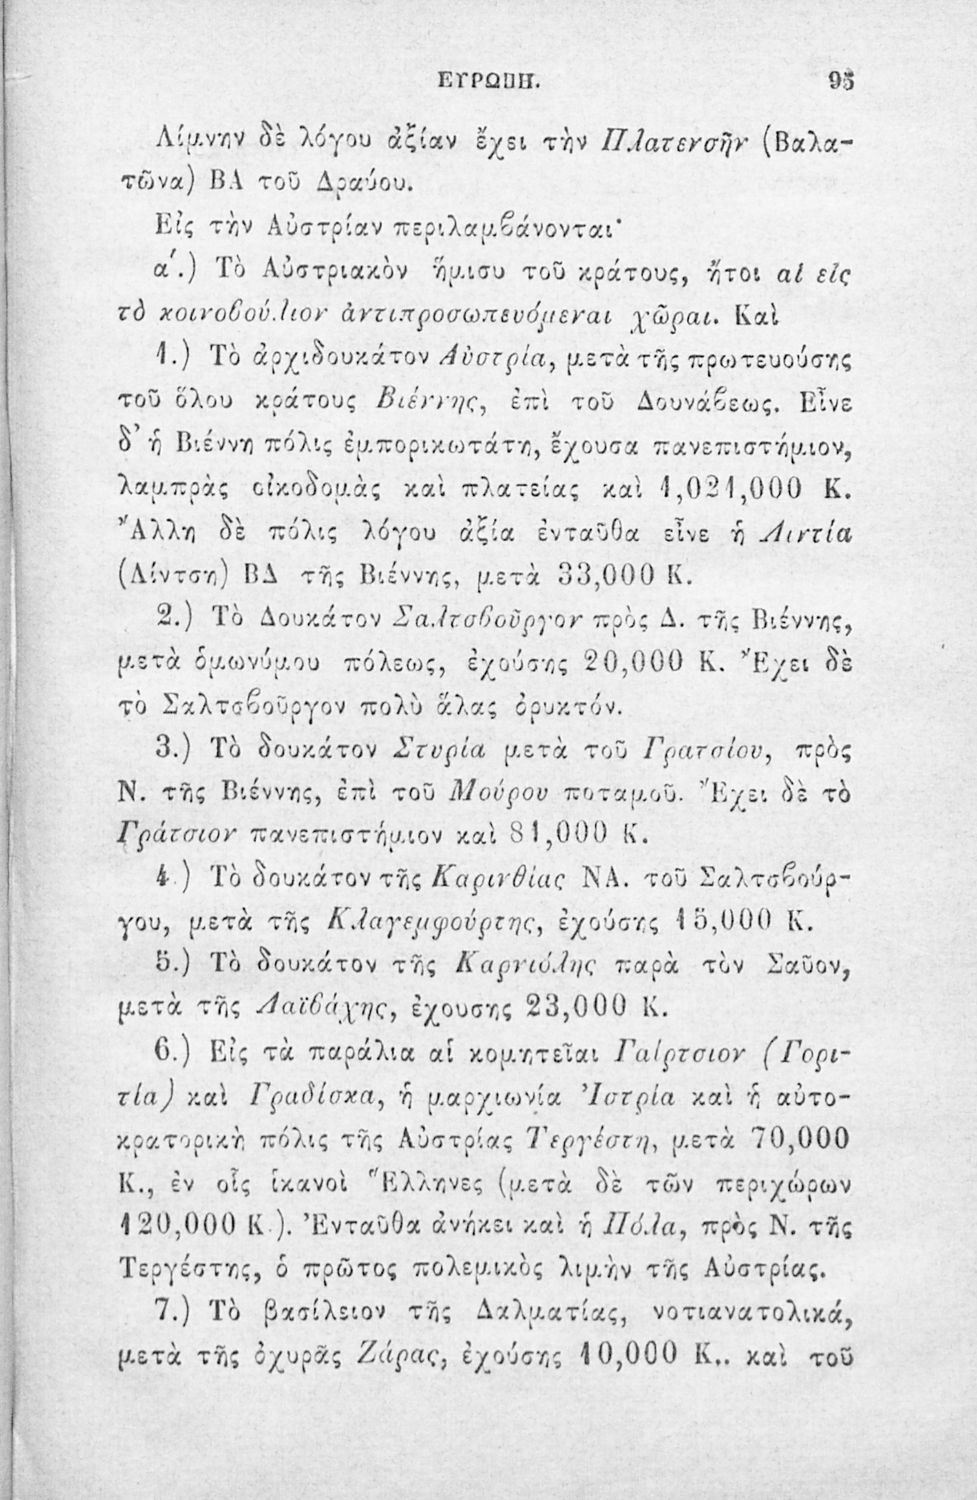 ΕΥΡΩΠΗ. 95
Λίμνην δὲ λόγου ἀξίαν ἔχει τὴν Πλατενσῆν (Βαλα-
τῶνα) ΒΑ τοῦ Δραύου.
Εἰς τὴν Αὐστρίαν περιλαμβάνονται·
α΄.) Τὸ Αὐστριακὸν ἥμισυ τοῦ κράτους, ἤτοι αἱ εἰς
τὸ κοινοβούλιον ἀντιπροσωπευόμεναι χῶραι. Καὶ
1.) Τὸ ἀρχιδουκάτον Αὐστρία, μετὰ τῆς πρωτευούσης
τοῦ ὅλου κράτους Βιέννης, ἐπὶ τοῦ Δουνάβεως. Εἶνε
δ' ἡ Βιέννη πόλις ἐμπορικωτάτη, ἔχουσα πανεπιστήμιον,
λαμπρὰς οἰκοδομὰς καὶ πλατείας καὶ 1,021,000 Κ.
Ἄλλη δὲ πόλις λόγου ἀξία ἐνταῦθα εἶνε ἡ Λιντία
(Λίντση) ΒΔ τῆς Βιέννης, μετὰ 33,000 Κ.
2.) Τὸ Δουκάτον Σαλτσβοῦργον πρὸς Δ. τῆς Βιέννης,
μετὰ ὁμωνύμου πόλεως, ἐχούσης 20,000 Κ. Ἔχει δὲ
τὸ Σαλτσβοῦργον πολὺ ἅλας ὀρυκτόν.
3.) Τὸ δουκάτον Στυρία μετὰ τοῦ Γρατσίου, πρὸς
Ν. τῆς Βιέννης, ἐπὶ τοῦ Μούρου ποταμοῦ. Ἔχει δὲ τὸ
Γράτσιον πανεπιστήμιον καὶ 81,000 Κ.
4.) Τὸ δουκάτον τῆς Καρινθίας ΝΑ. τοῦ Σαλτσβούρ-
γου, μετὰ τῆς Κλαγεμφούρτης, ἐχούσης 15,000 Κ.
5.) Τὸ δουκάτον τῆς Καρνιόλης παρὰ τὸν Σαῦον,
μετὰ τῆς Λαϊβάχης, ἐχουσης 23,000 Κ.
6.) Εἰς τὰ παράλια αἱ κομητεῖαι Γαίρτσιον (Γορι-
τία) καὶ Γραδίσκα, ἡ μαρχιωνία Ἰστρία καὶ ἡ αὐτο-
κρατορικὴ πόλις τῆς Αὐστρίας Τεργέστη, μετὰ 70,000
Κ., ἐν οἷς ἱκανοὶ Ἕλληνες (μετὰ δὲ τῶν περιχώρων
120,000 Κ.). Ἐνταῦθα ἀνήκει καὶ ἡ Πόλα, πρὸς Ν. τῆς
Τεργέστης, ὁ πρῶτος πολεμικὸς λιμὴν τῆς Αὐστρίας.
7.) Τὸ βασίλειον τῆς Δαλματίας, νοτιανατολικά,
μετὰ τῆς ὀχυρᾶς Ζάρας, ἐχούσης 10,000 Κ.. καὶ τοῦ